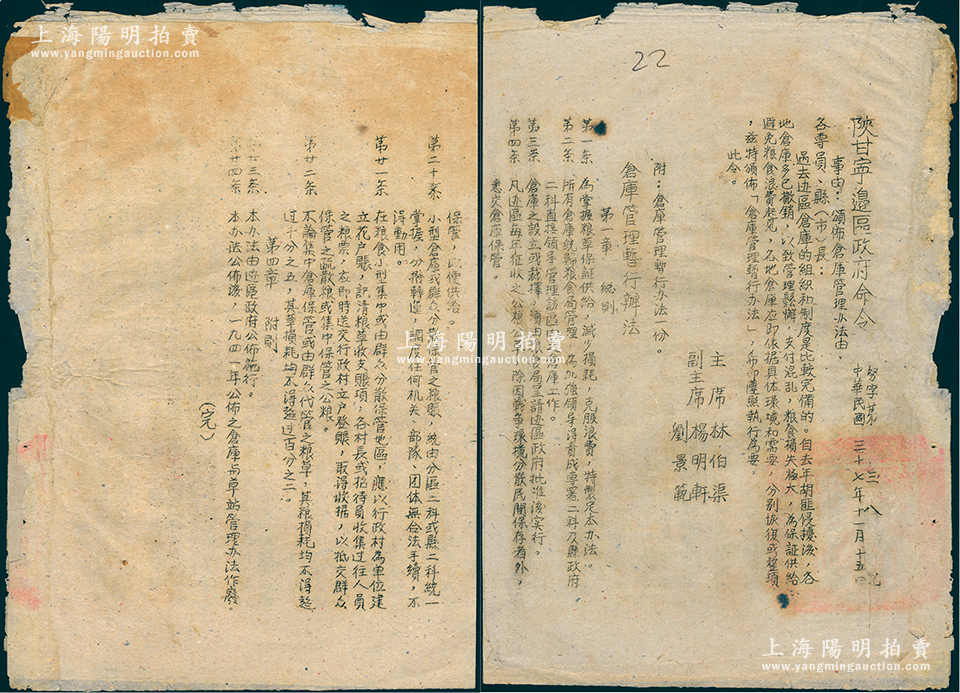 上海陽明拍賣
www.yangmingauction.com
22
陝甘寧邊區政府命令
努字第三八號
中華民國三十七年十一月十五日
事由：頒佈倉庫管理办法由，
各專員、縣（市）長：
過去边區倉庫的組织和制度是比較完備的。但去年胡匪侵擾後，各
地倉庫多已撤銷，以致管理鬆懈，支付混乱，粮食損失極大，為保証供給
避免粮食浪費起見，各地倉庫应即依据具体環境和需要，分别恢復或整頓
，兹特頒佈「倉庫管理暫行办法」，希即遵照執行為要。
此令。
主席 林伯渠
副主席 楊明軒
劉景範
附：倉庫管理暫行办法一份。
倉庫管理暫行辦法
第一章 総則
第一条 為掌握粮草保証供給，減少損耗，克服浪費，特製定本办法。
第二条 所有倉庫統歸粮食局管理，為加強領导得責成專署二科及縣政府
二科直接領导管理該區倉庫工作。
第三条 倉庫之設立或裁撤，須由粮食局呈請边區政府批准後实行。
第四条 凡边區每年征收之公粮公草，除因戰争環境分散民間保存者外，
悉交倉庫保管。
保管，以便供給。
第二十条 小型倉庫或群众分散保管之粮賬，統由分區二科或縣二科統一
掌握，分撥轉運，調度，任何机关、部隊、团体無合法手續，不
得動用。
第廿一条 在粮食小型集中或由群众分散保管地區，應以行政村為单位建
立花户賬，記清粮草收支賬項；各村長或招待員收集过往人員
之粮票，应即時送交行政村立户登賬，取得收据，以抵交群众
保管之疏散粮或集中保管之公粮。
第廿二条 不論集中倉庫保管或由群众代管之粮草，其粮損耗均不得超
过千分之五，其草損耗均不得超过百分之二。
第四章 附則
廿三条 本办法由边區政府公佈施行。
第廿四条 本办法公佈後，一九四一年公佈之倉庫与草站管理办法作廢。
（完）
上海陽明拍賣
www.yangmingauction.com
上海陽明拍賣
www.yangmingauction.com